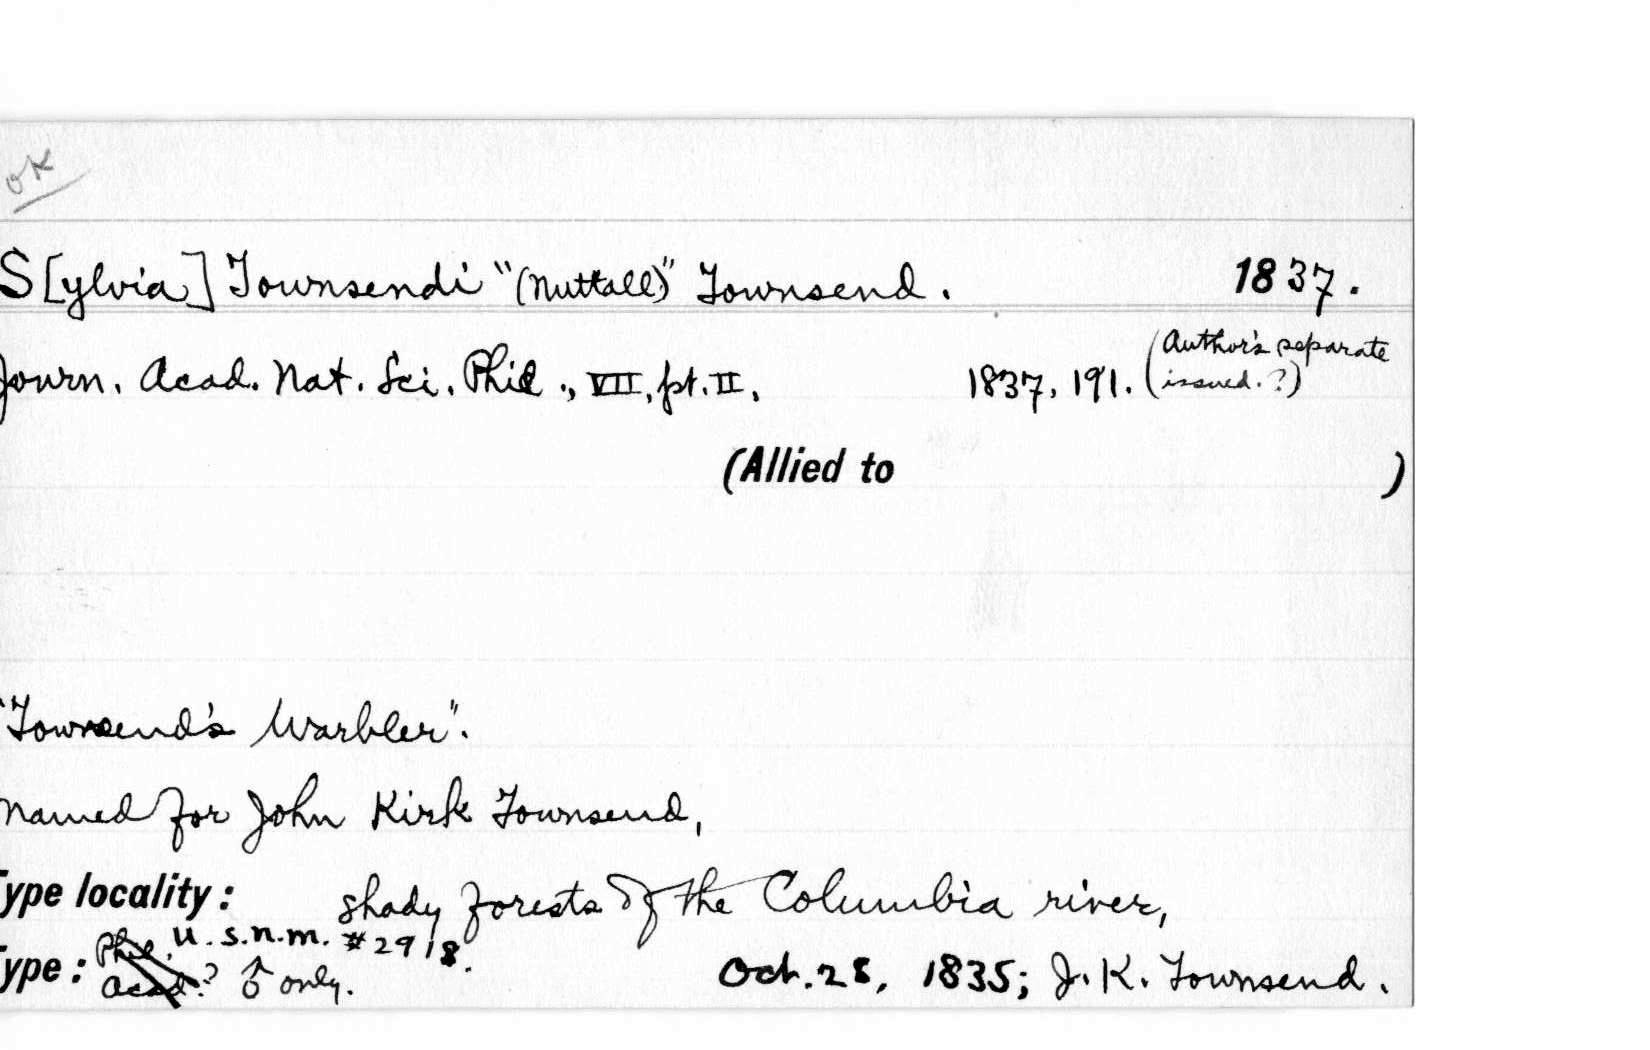 OK
S[ylvia] Townsendi "(Nuttall)" Townsend. 1837.
Journ. Acad. Nat. Sci. Phil., VII, pt. II, 1837, 191. (Author's separate
issued.?)
(Allied to )
"Townsend's Warbler".
Named for John Kirk Townsend,
Type locality: shady forests of the Columbia river,
Phil. U.S.N.M. #2918.
Type: Acad.? ♂ only. Oct. 28, 1835; J. K. Townsend.